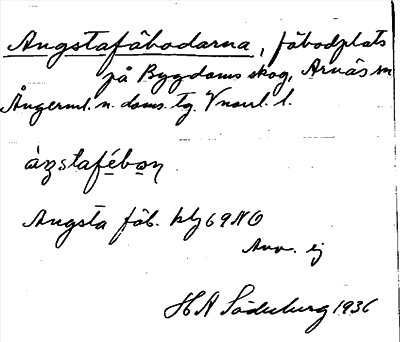 Angstafäbodarna, fäbodplats
på Bygdoms skog, Arnäs sn
Ångerml. n. doms. tg. Vnorrl. l.
àzstafébon
Angsta fäb. blj 69 NO
Anv. ej
H A Söderberg 1936